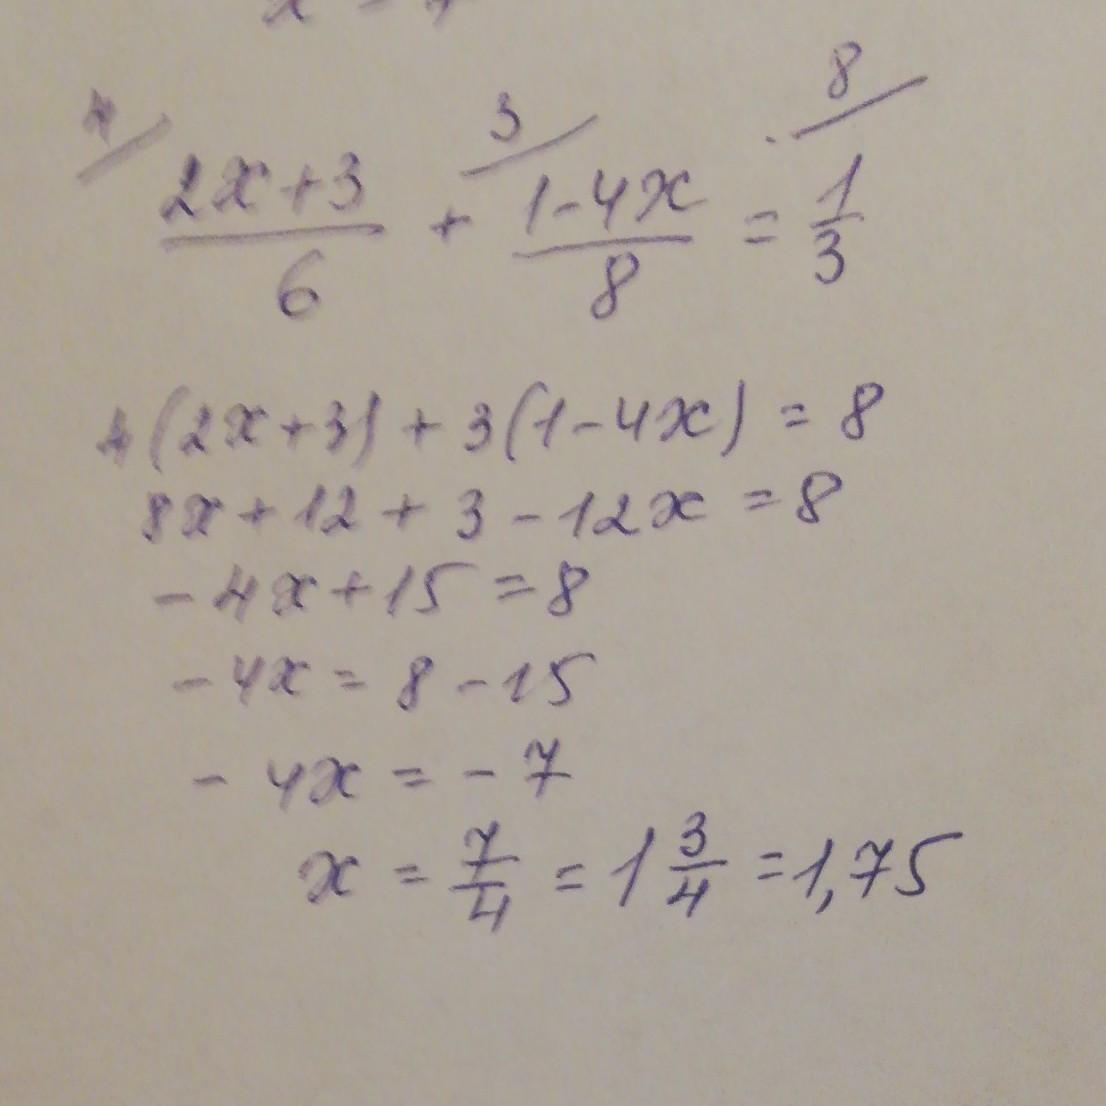 4/ (2x+3)/6 + 3/ (1-4x)/8 = 8/ 1/3
4(2x+3) + 3(1-4x) = 8
8x + 12 + 3 - 12x = 8
-4x + 15 = 8
-4x = 8 - 15
-4x = -7
x = 7/4 = 1 3/4 = 1,75